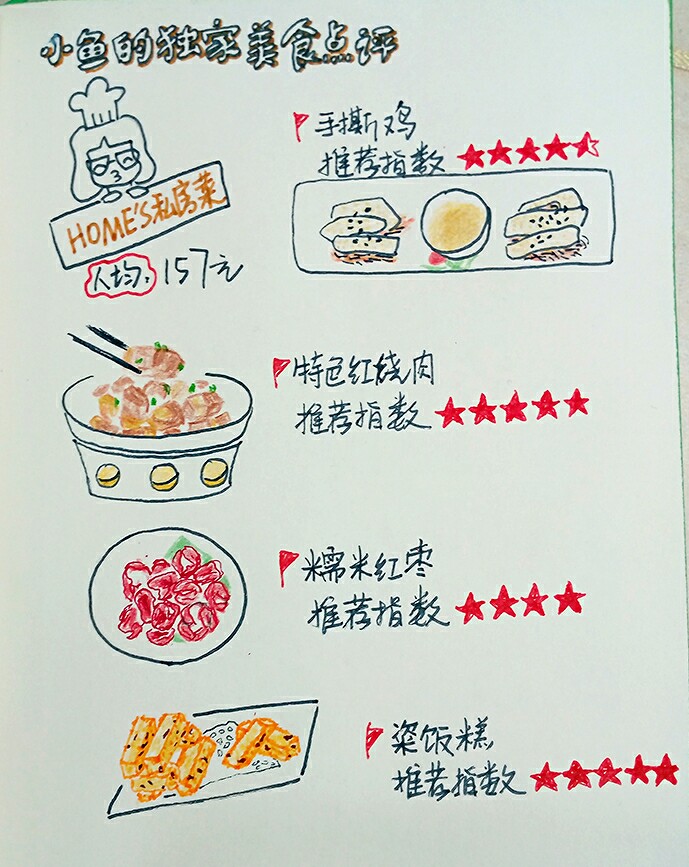 小鱼的独家美食点评
HOME'S私房菜
人均:157元
手撕鸡
推荐指数
特色红烧肉
推荐指数
糯米红枣
推荐指数
粢饭糕
推荐指数